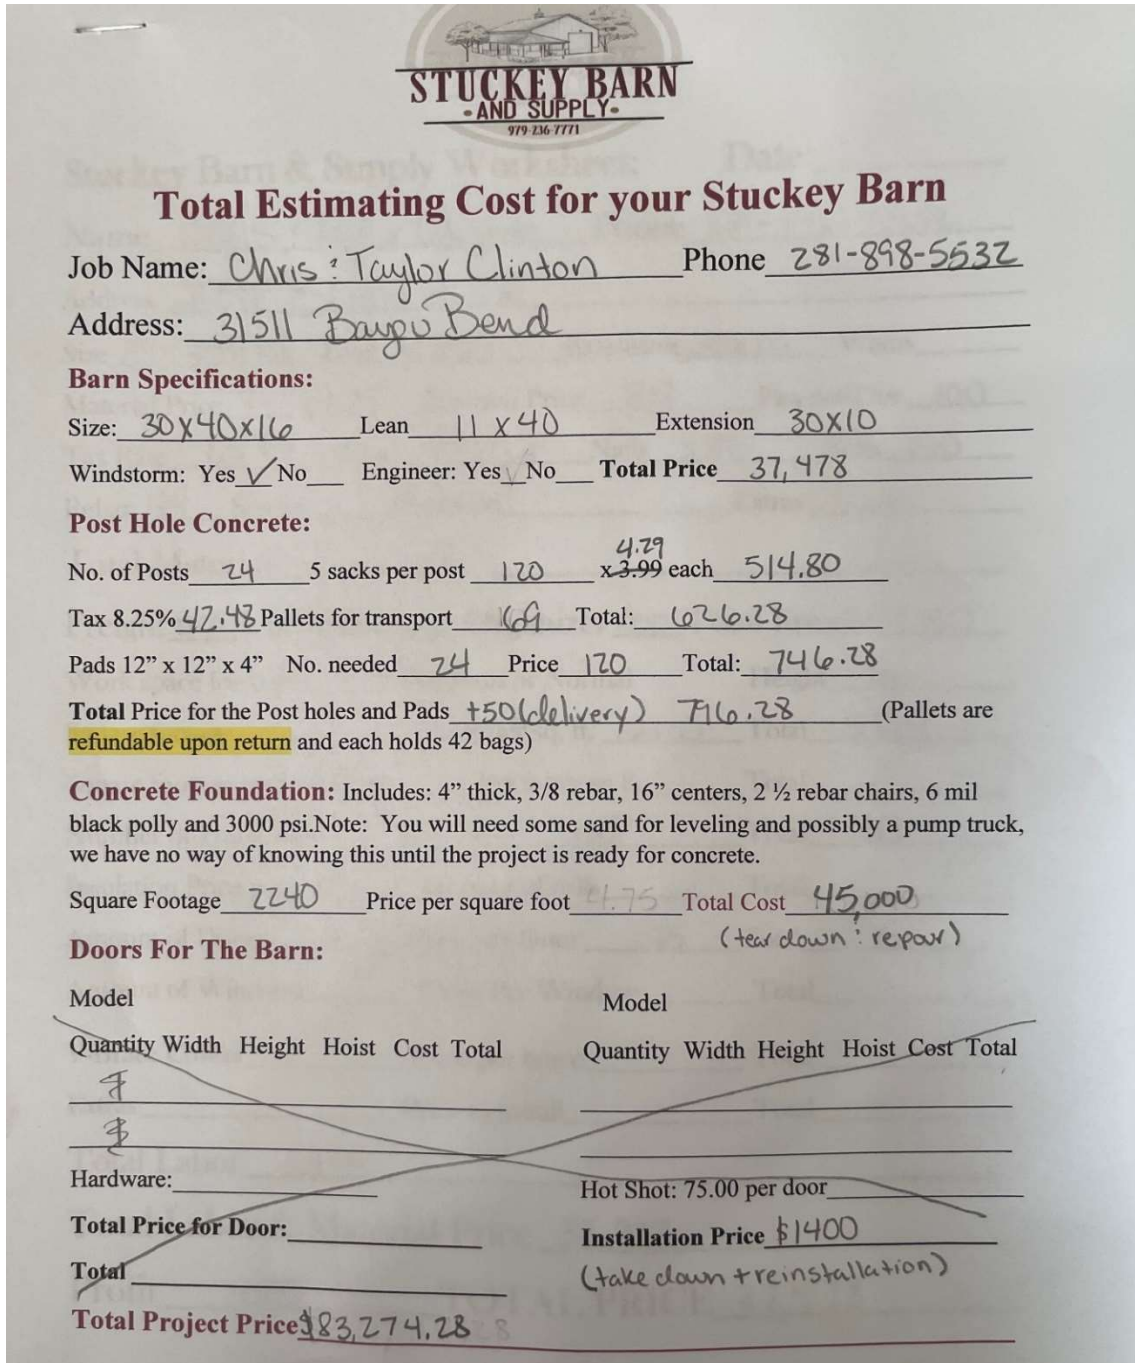 STUCKEY BARN
-AND SUPPLY-
979-236-7771
Total Estimating Cost for your Stuckey Barn
Job Name: Chris & Taylor Clinton Phone 281-898-5532
Address: 31511 Bayou Bend
Barn Specifications:
Size: 30X40X16 Lean 11 X 40 Extension 30X10
Windstorm: Yes ✓ No Engineer: Yes ✓ No Total Price 37,478
Post Hole Concrete:
4.29
No. of Posts 24 5 sacks per post 120 x 3.99 each 514.80
Tax 8.25% 42.48 Pallets for transport 69 Total: 626.28
Pads 12” x 12” x 4” No. needed 24 Price 120 Total: 746.28
Total Price for the Post holes and Pads +50 (delivery) 796.28 (Pallets are
refundable upon return and each holds 42 bags)
Concrete Foundation: Includes: 4” thick, 3/8 rebar, 16” centers, 2 ½ rebar chairs, 6 mil
black polly and 3000 psi.Note: You will need some sand for leveling and possibly a pump truck,
we have no way of knowing this until the project is ready for concrete.
Square Footage 2240 Price per square foot 4.75 Total Cost 45,000
(tear down & repour)
Doors For The Barn:
Model Model
Quantity Width Height Hoist Cost Total Quantity Width Height Hoist Cost Total
Hardware: Hot Shot: 75.00 per door
Total Price for Door: Installation Price $1400
Total (take down + reinstallation)
Total Project Price $83,274.28